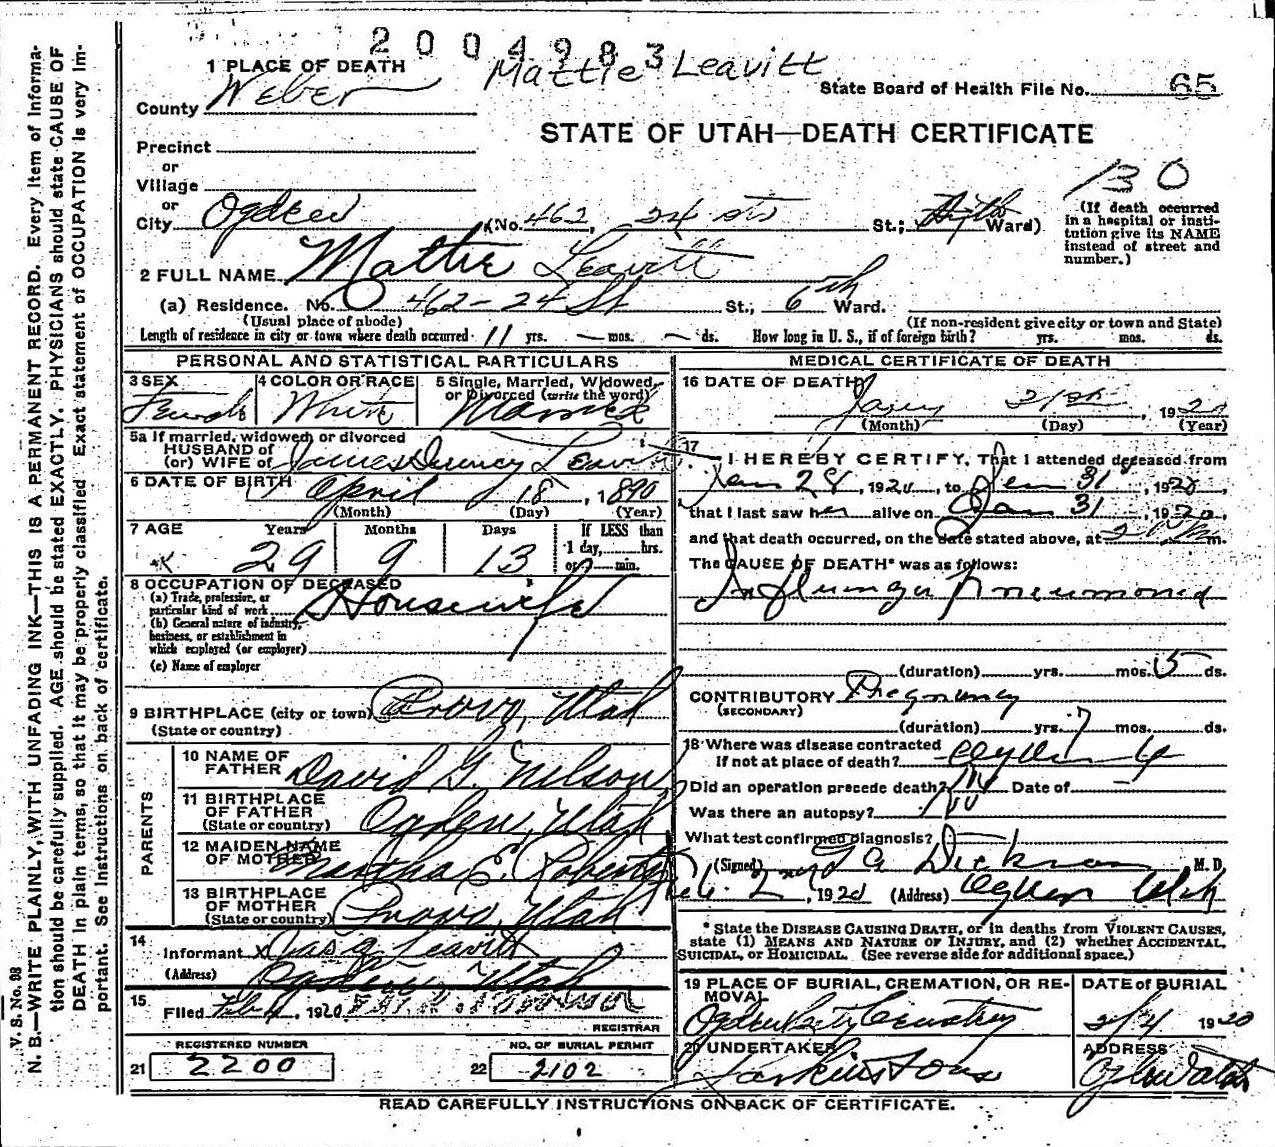 2004983
1 PLACE OF DEATH Mattie Leavitt
County Weber State Board of Health File No. 65
STATE OF UTAH—DEATH CERTIFICATE
Precinct
or
Village
130
or
City Ogden (No. 462, 24 St; Ward)
(If death occurred in a hospital or insti-
tution give its NAME instead of street and number.)
2 FULL NAME Mattie Leavitt
(a) Residence. No. 462-24 St St.; 6th Ward.
(Usual place of abode) (If non-resident give city or town and State)
Length of residence in city or town where death occurred 11 yrs. — mos. — ds. How long in U. S., if of foreign birth? yrs. mos. ds.
PERSONAL AND STATISTICAL PARTICULARS
3 SEX Female 4 COLOR OR RACE White 5 Single, Married, Widowed, or Divorced (write the word) Married
5a If married, widowed, or divorced
HUSBAND of
(or) WIFE of James Leavitt
6 DATE OF BIRTH April 18, 1890
(Month) (Day) (Year)
7 AGE Years Months Days If LESS than
29 9 13 1 day, hrs.
or min.
8 OCCUPATION OF DECEASED
(a) Trade, profession, or
particular kind of work Housewife
(b) General nature of industry,
business, or establishment in
which employed (or employer)
(c) Name of employer
9 BIRTHPLACE (city or town) Provo, Utah
(State or country)
PARENTS
10 NAME OF FATHER David G. Nelson
11 BIRTHPLACE OF FATHER Ogden, Utah
(State or country)
12 MAIDEN NAME OF MOTHER Martha E. Roberts
13 BIRTHPLACE OF MOTHER Provo, Utah
(State or country)
14 Informant x Leavitt
(Address) Ogden, Utah
15 Filed Feb 4, 1920
REGISTRAR
REGISTERED NUMBER NO. OF BURIAL PERMIT
21 2200 22 2102
MEDICAL CERTIFICATE OF DEATH
16 DATE OF DEATH 31st, 1920
(Month) (Day) (Year)
17 I HEREBY CERTIFY, That I attended deceased from
Jan 28, 1920, to Jan 31, 1920
that I last saw her alive on Jan 31 1920,
and that death occurred, on the date stated above, at m.
The CAUSE OF DEATH* was as follows:
Influenza Pneumonia
(duration) yrs. mos. 5 ds.
CONTRIBUTORY Pregnancy
(SECONDARY)
(duration) yrs. 7 mos. ds.
18 Where was disease contracted
If not at place of death?
Did an operation precede death? No Date of
Was there an autopsy? No
What test confirmed diagnosis?
(Signed) M. D.
Feb. 2nd, 1920 (Address) Ogden Utah
* State the DISEASE CAUSING DEATH, or in deaths from VIOLENT CAUSES,
state (1) MEANS AND NATURE OF INJURY, and (2) whether ACCIDENTAL,
SUICIDAL, or HOMICIDAL. (See reverse side for additional space.)
19 PLACE OF BURIAL, CREMATION, OR RE- DATE of BURIAL
MOVAL
Ogden City Cemetery 2/4 1920
20 UNDERTAKER ADDRESS
Larkin & Sons Ogden Utah
READ CAREFULLY INSTRUCTIONS ON BACK OF CERTIFICATE.
V. S. No. 98
N. B.—WRITE PLAINLY, WITH UNFADING INK—THIS IS A PERMANENT RECORD. Every item of informa-
tion should be carefully supplied. AGE should be stated EXACTLY. PHYSICIANS should state CAUSE OF
DEATH in plain terms, so that it may be properly classified. Exact statement of OCCUPATION is very im-
portant. See Instructions on back of certificate.